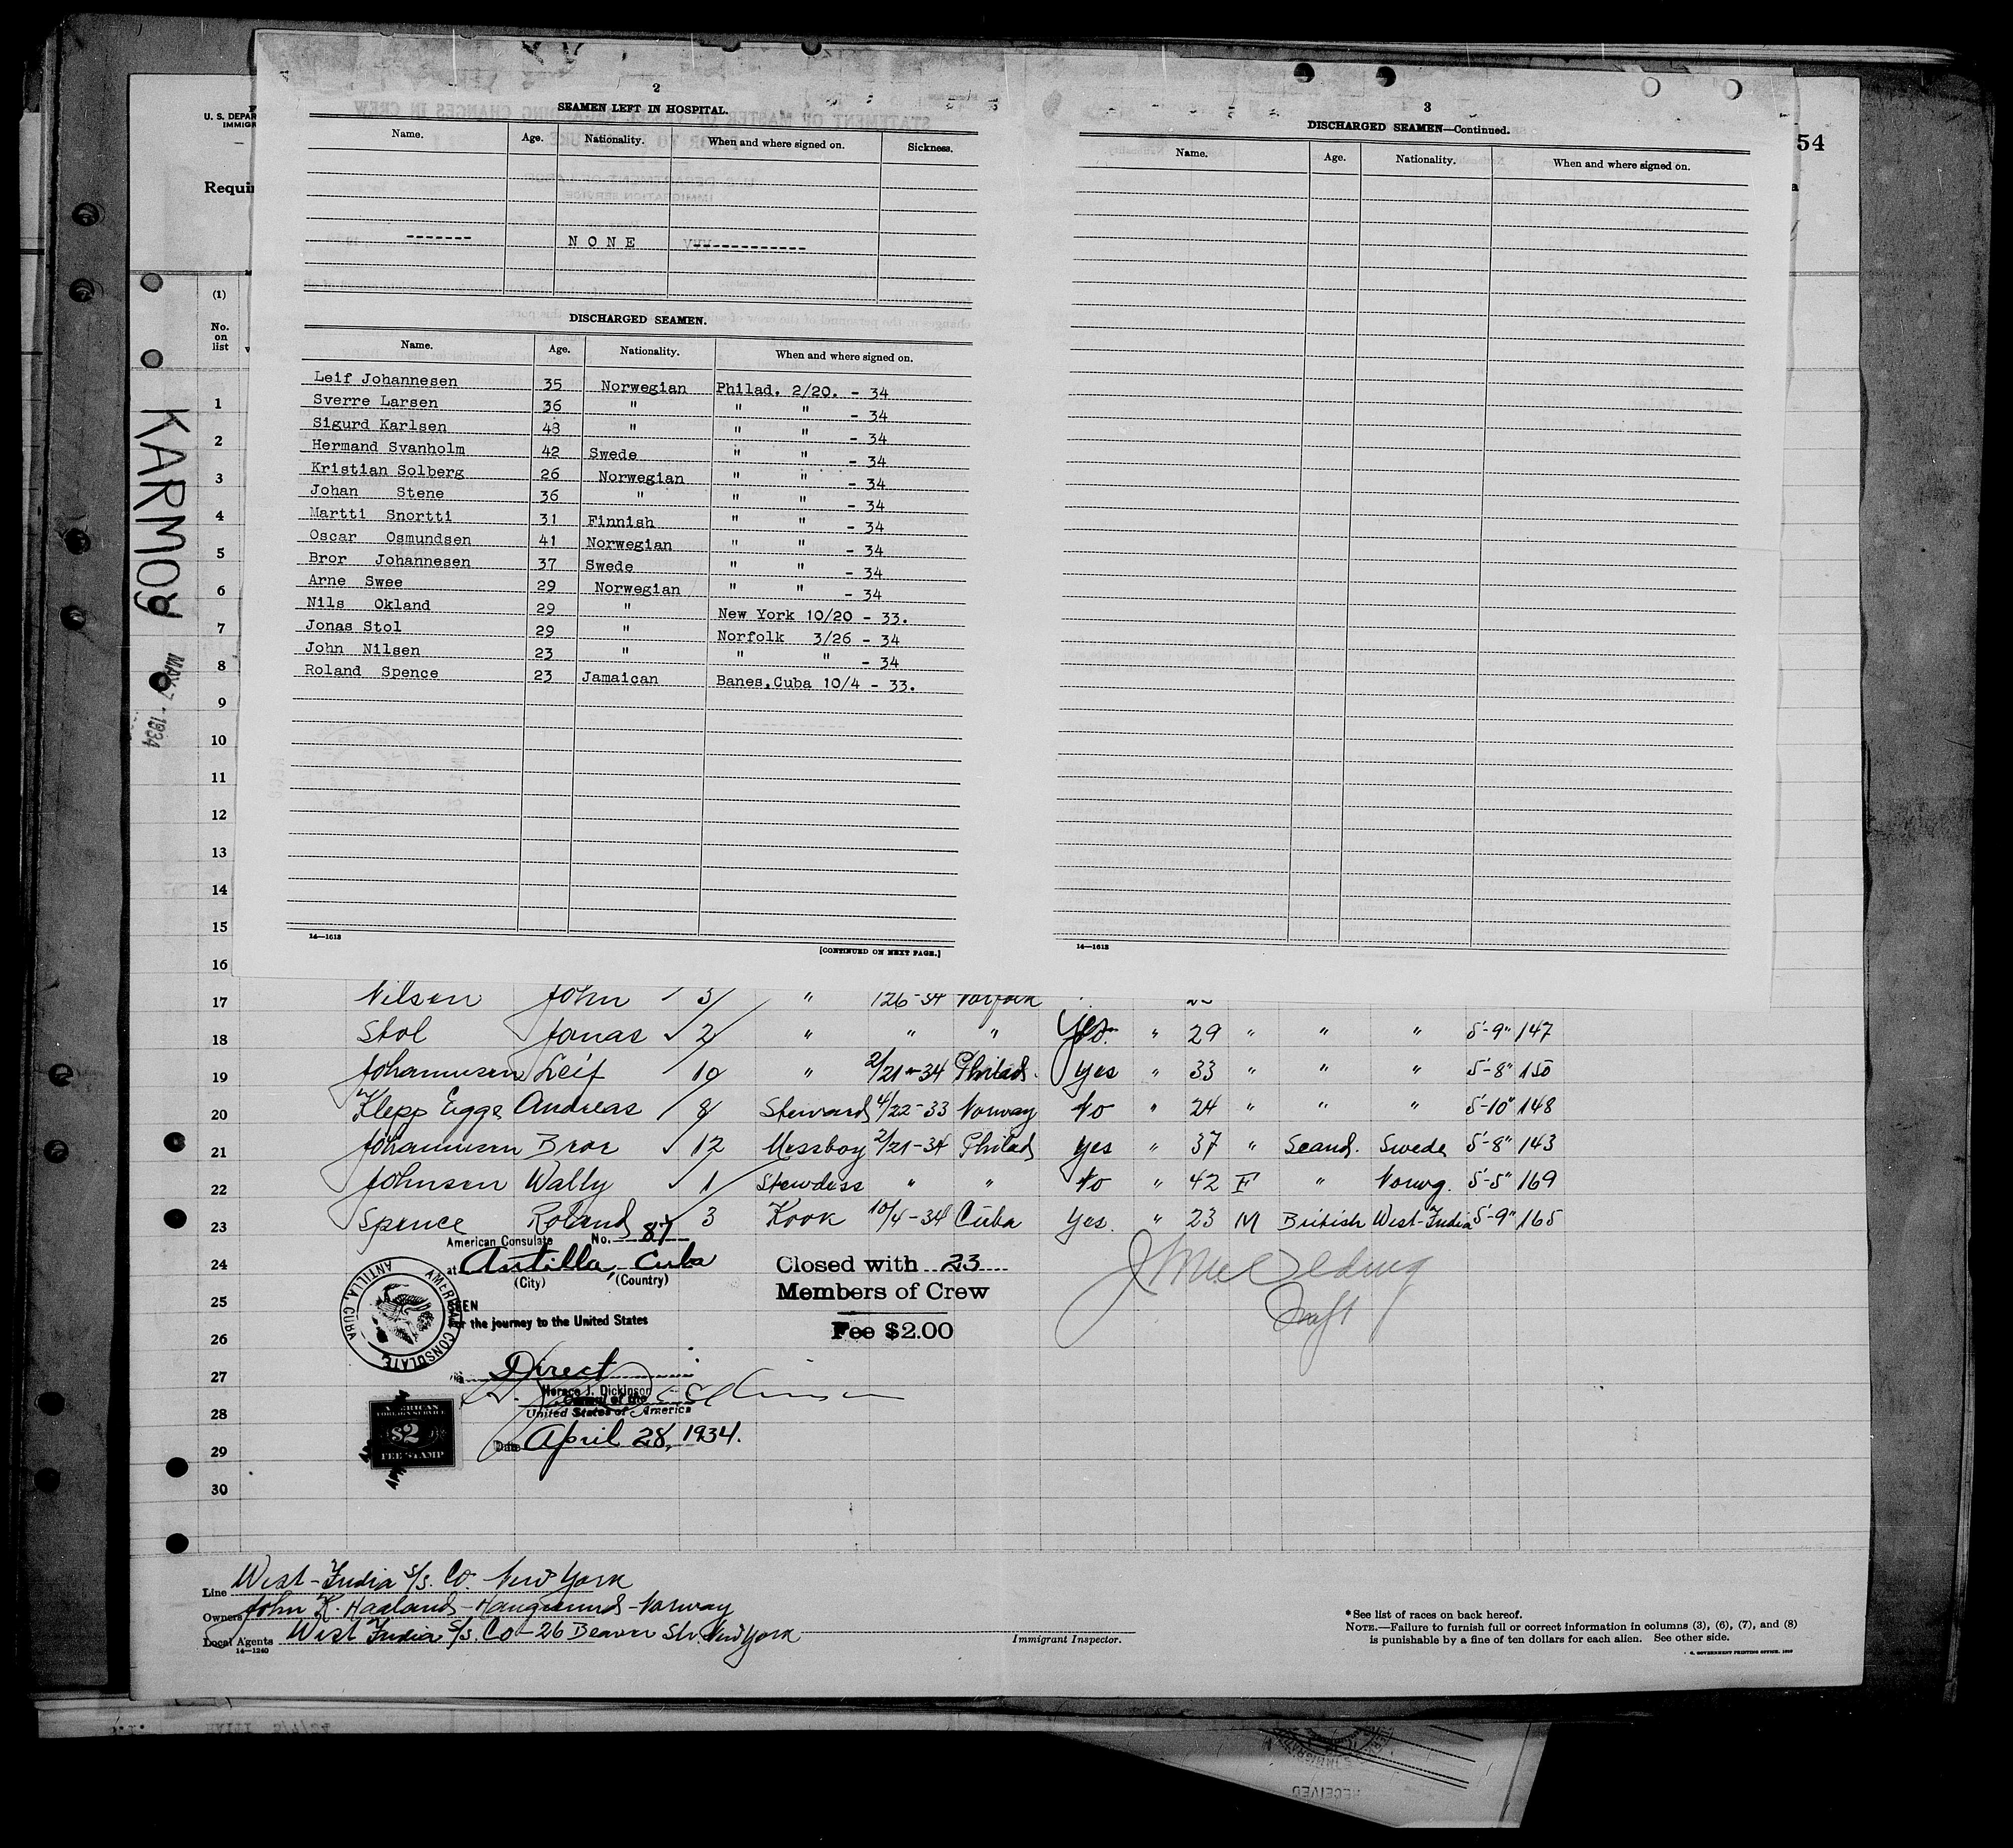 U. S. DEPAR
IMMIGR
Requir
54
2
SEAMEN LEFT IN HOSPITAL.
Name. Age. Nationality. When and where signed on. Sickness.
------- N O N E ------------
DISCHARGED SEAMEN.
Name. Age. Nationality. When and where signed on.
Leif Johannesen 35 Norwegian Philad. 2/20. - 34
Sverre Larsen 36 " " " - 34
Sigurd Karlsen 48 " " " - 34
Hermand Svanholm 42 Swede " " - 34
Kristian Solberg 26 Norwegian " " - 34
Johan Stene 36 " " " - 34
Martti Snortti 31 Finnish " " - 34
Oscar Osmundsen 41 Norwegian " " - 34
Bror Johannesen 37 Swede " " - 34
Arne Swee 29 Norwegian " " - 34
Nils Okland 29 " New York 10/20 - 33.
Jonas Stol 29 " Norfolk 3/26 - 34
John Nilsen 23 " " " - 34
Roland Spence 23 Jamaican Banes,Cuba 10/4 - 33.
14—1613
[CONTINUED ON NEXT PAGE.]
3
DISCHARGED SEAMEN—Continued.
Name. Age. Nationality. When and where signed on.
14—1613
(1)
No.
on
list
KARMOY
MAY 7 - 1934
1
2
3
4
5
6
7
8
9
10
11
12
13
14
15
16
17 Nilsen John 3/ " 126-34 Norfolk
18 Stol Jonas 2/ " " " Yes. " 29 " " " 5'-9" 147
19 Johannesen Leif 10 " 2/21-34 Philad. Yes " 33 " " " 5'-8" 150
20 Klepp Egge Andreas 8 Steward 4/22-33 Norway No " 24 " " " 5'-10" 148
21 Johannesen Bror 12 Messboy 2/21-34 Philad Yes " 37 " Scand. Swede 5'-8" 143
22 Johnsen Wally 1 Stewdess " " No " 42 F " Norwg. 5'-5" 169
23 Spence Roland 3 Kook 10/4-34 Cuba Yes. " 23 M British West-India 5'-9" 165
24
25
26
27
28
29
30
American Consulate No. 87
at Antilla, Cuba
(City) (Country)
AMERICAN CONSULATE
ANTILLA, CUBA
SEEN
For the journey to the United States
Direct
Horace J. Dickinson
Consul of the
United States of America
Date April 28, 1934.
AMERICAN
FOREIGN SERVICE
$2
FEE STAMP
Closed with 23
Members of Crew
Fee $2.00
Line West-India S/S. Co. New York
Owners John K. Haaland-Haugesund-Norway
Local Agents West India S/S. Co-26 Beaver Str. New York
14—1240
Immigrant Inspector.
*See list of races on back hereof.
NOTE.—Failure to furnish full or correct information in columns (3), (6), (7), and (8)
is punishable by a fine of ten dollars for each alien. See other side.
GOVERNMENT PRINTING OFFICE
RECEIVED